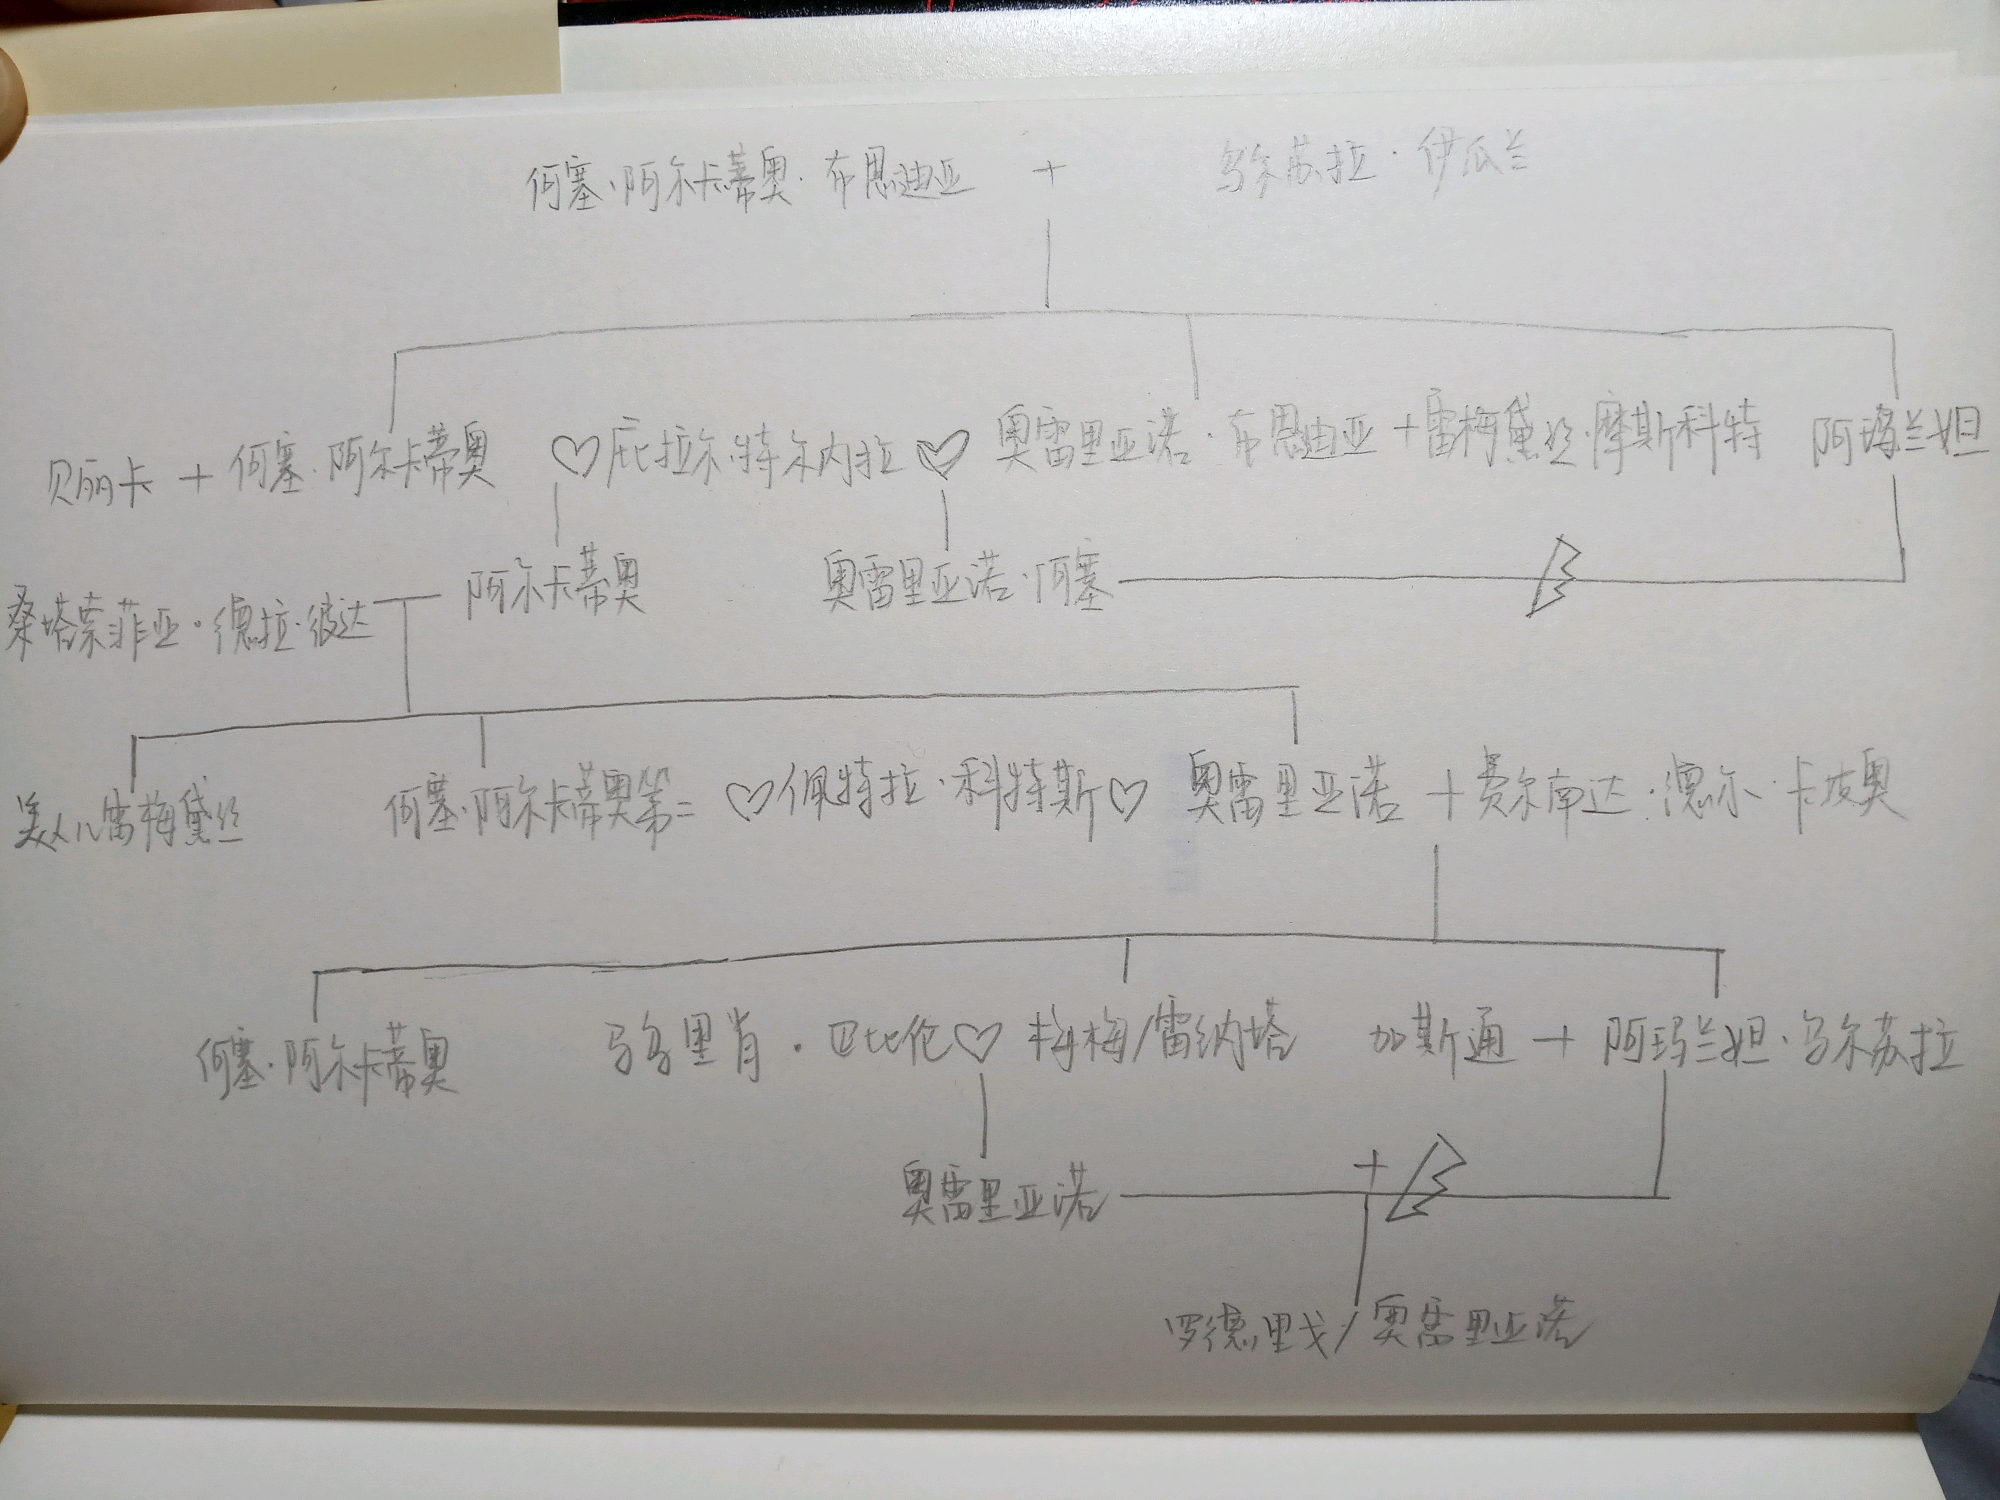 何塞·阿尔卡蒂奥·布恩迪亚 + 乌尔苏拉·伊瓜兰
贝丽卡 + 何塞·阿尔卡蒂奥 ♡ 庇拉尔·特尔内拉 ♡ 奥雷里亚诺·布恩迪亚 + 雷梅黛丝·摩斯科特 阿玛兰妲
桑塔索菲亚·德拉·彼达 阿尔卡蒂奥 奥雷里亚诺·何塞
美人儿雷梅黛丝 何塞·阿尔卡蒂奥第二 ♡ 佩特拉·科特斯 ♡ 奥雷里亚诺 + 费尔南达·德尔·卡皮奥
何塞·阿尔卡蒂奥 马乌里肖·巴比伦 ♡ 梅梅/雷纳塔 加斯通 + 阿玛兰妲·乌尔苏拉
奥雷里亚诺 +
罗德里戈/奥雷里亚诺